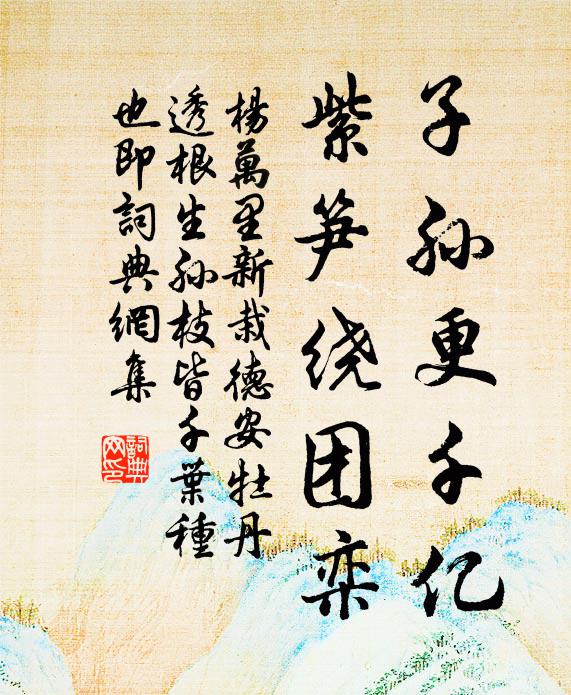 子孙更千亿
紫笋绕团栾
楊萬里新栽德安牡丹
透根生孙枝皆千葉種
也即詞典網集
詞典
网印